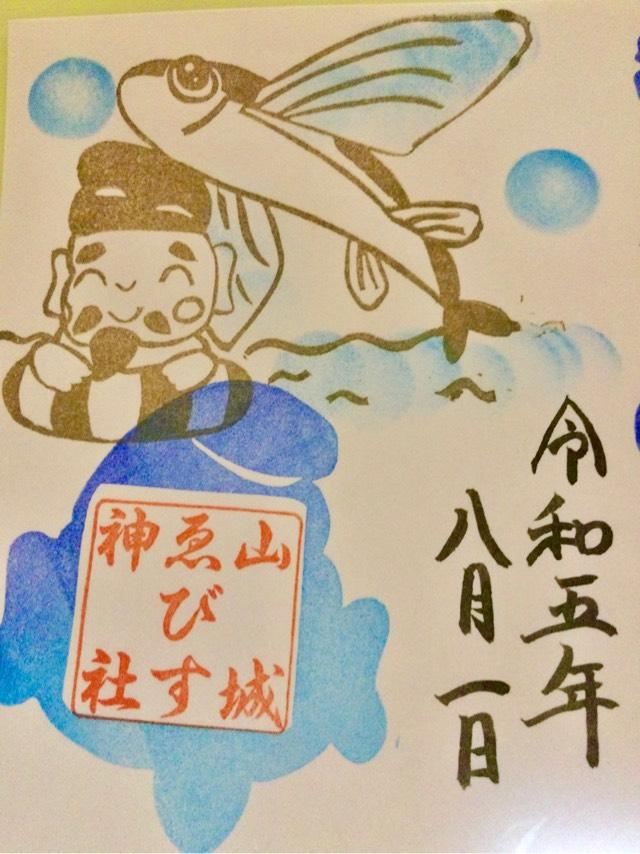 令和五年
八月一日
山城
ゑびす
神社